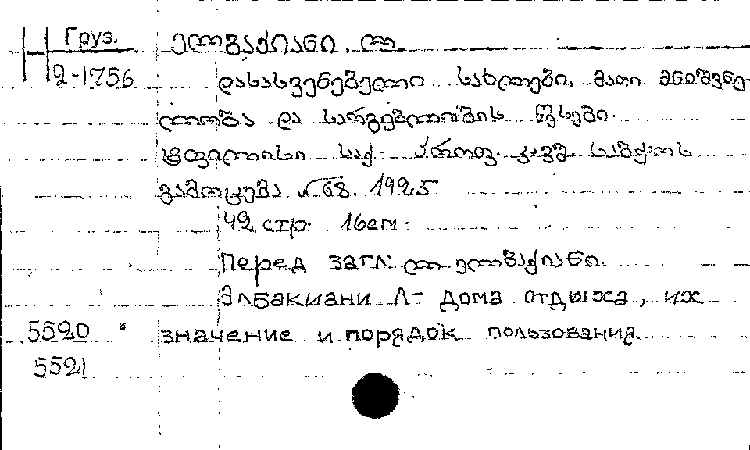 Груз. ელბაქიანი ლ.
2-1756 დასასვენებელი სახლები, მათი მნიშვნე
ლობა და სარგებლობის წესები.
ტფილისი საქ. პროფ. კავშ. საბჭოს
გამოცემა №68. 1925
42 стр. 16см.
Перед загл: ლ. ელბაქიანი.
Элбакиани Л- дома отдыха, их
5520 значение и порядок пользования.
5521